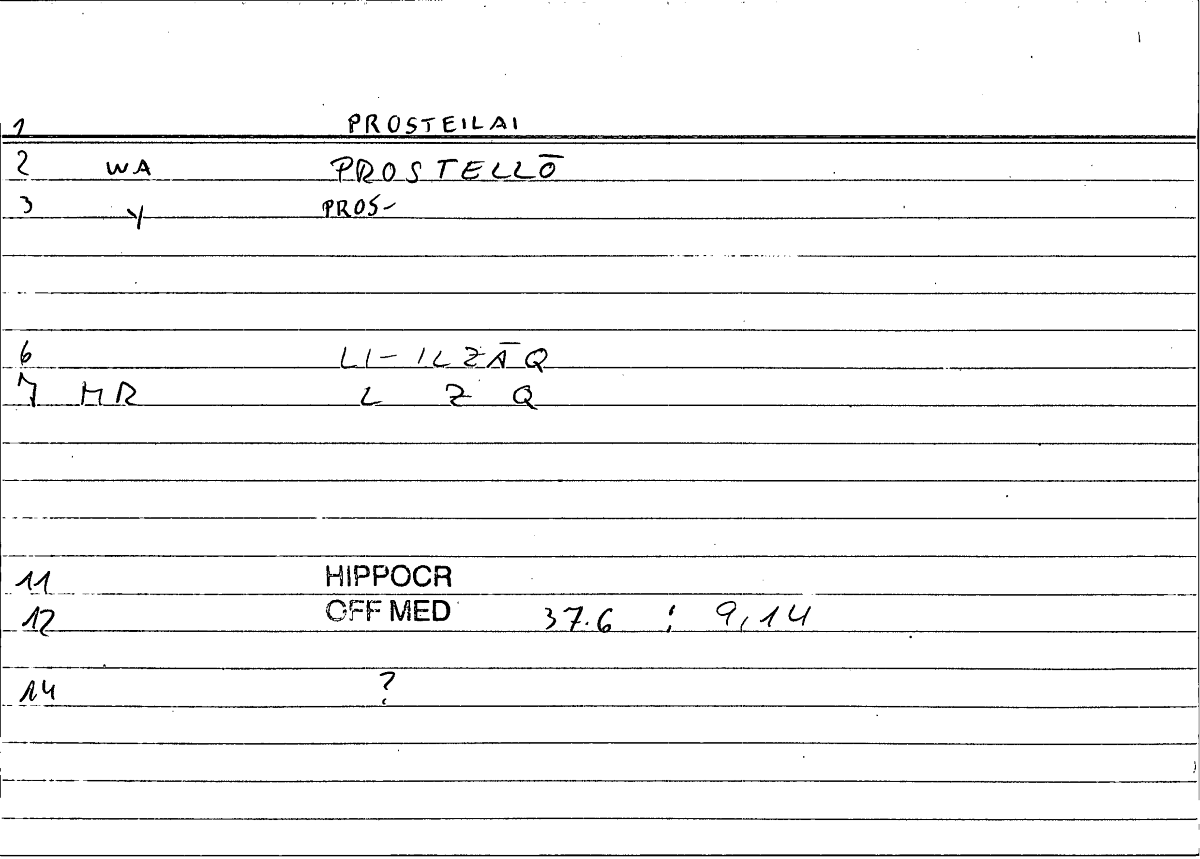 1 PROSTEILAI
2 WA PROSTELLŌ
3 Y PROS-
6 LI-ILZĀQ
7 MR L Z Q
11 HIPPOCR
12 OFF MED 37.6 ; 9,14
14 ?